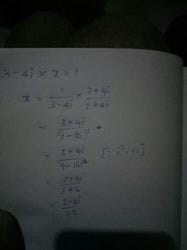 3-4i × x = 1
x = 1/3-4i × 3+4i/3+4i
= 3+4i/9-16i²
= 3+4i/9-16i² [∵ i² = -1]
= 3+4i/9+16
= 3+4i/25